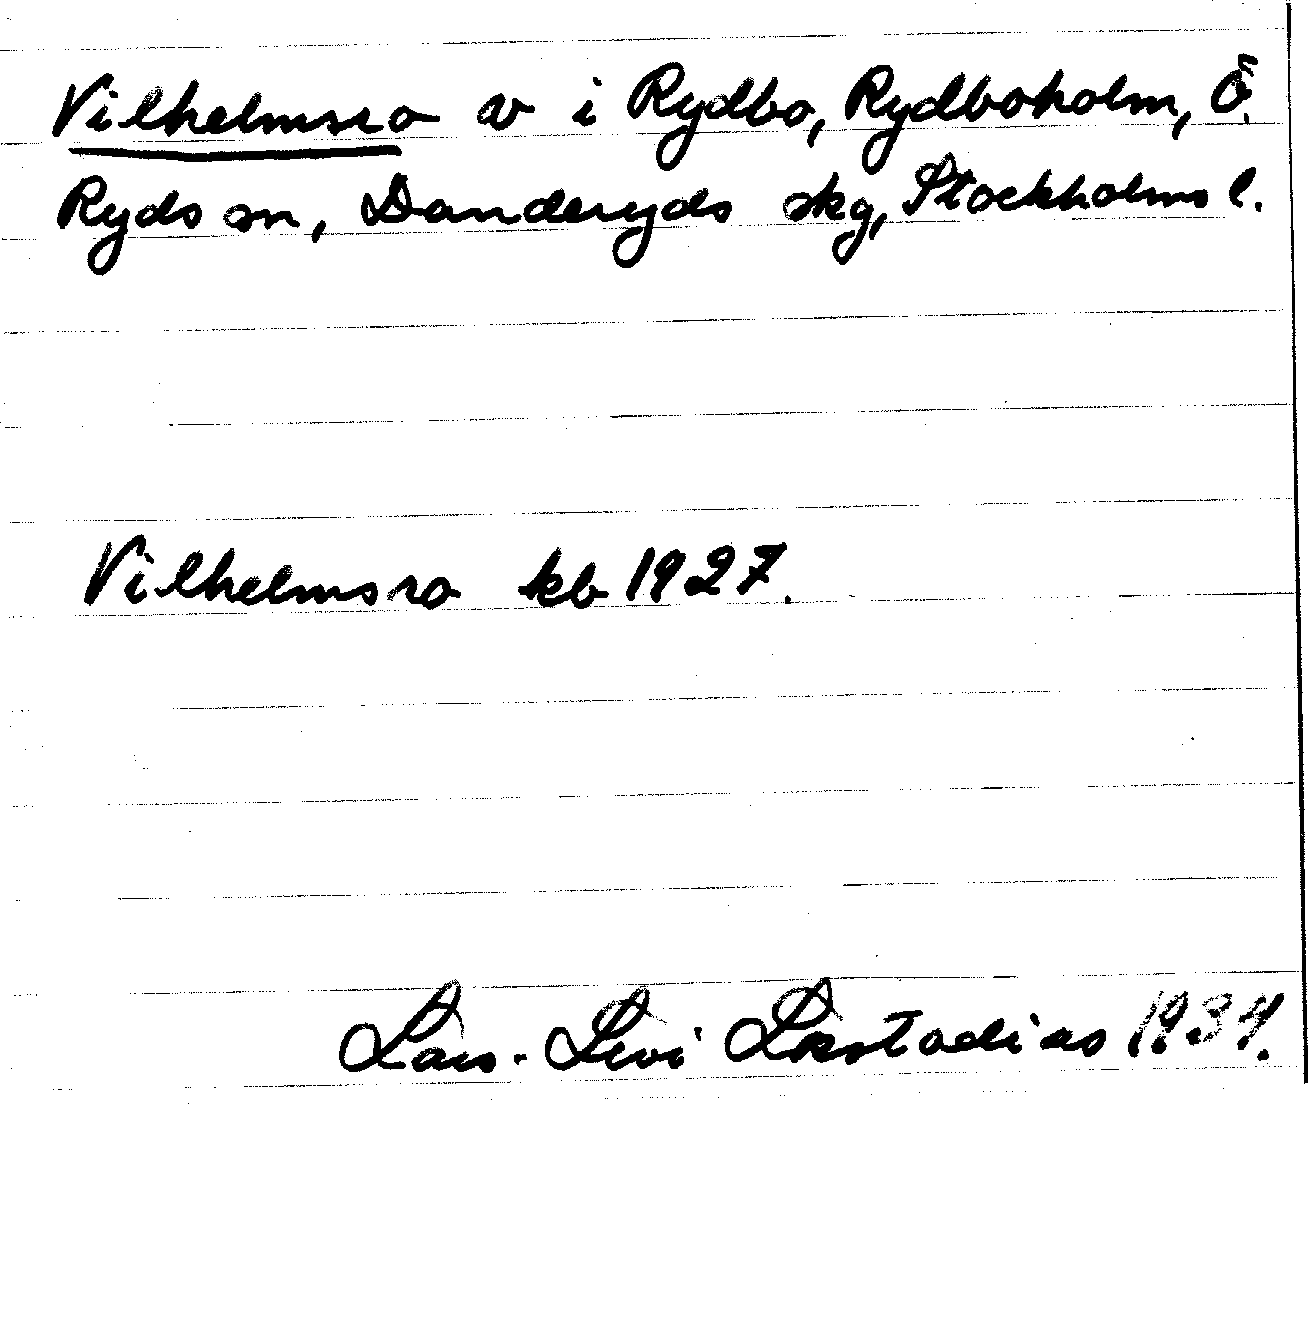 Vilhelmsro v i Rydbo, Rydboholm, Ö.
Ryds sn, Danderyds skg, Stockholms l.
Vilhelmsro kb 1927.
Lars-Levi Læstadius 1934.